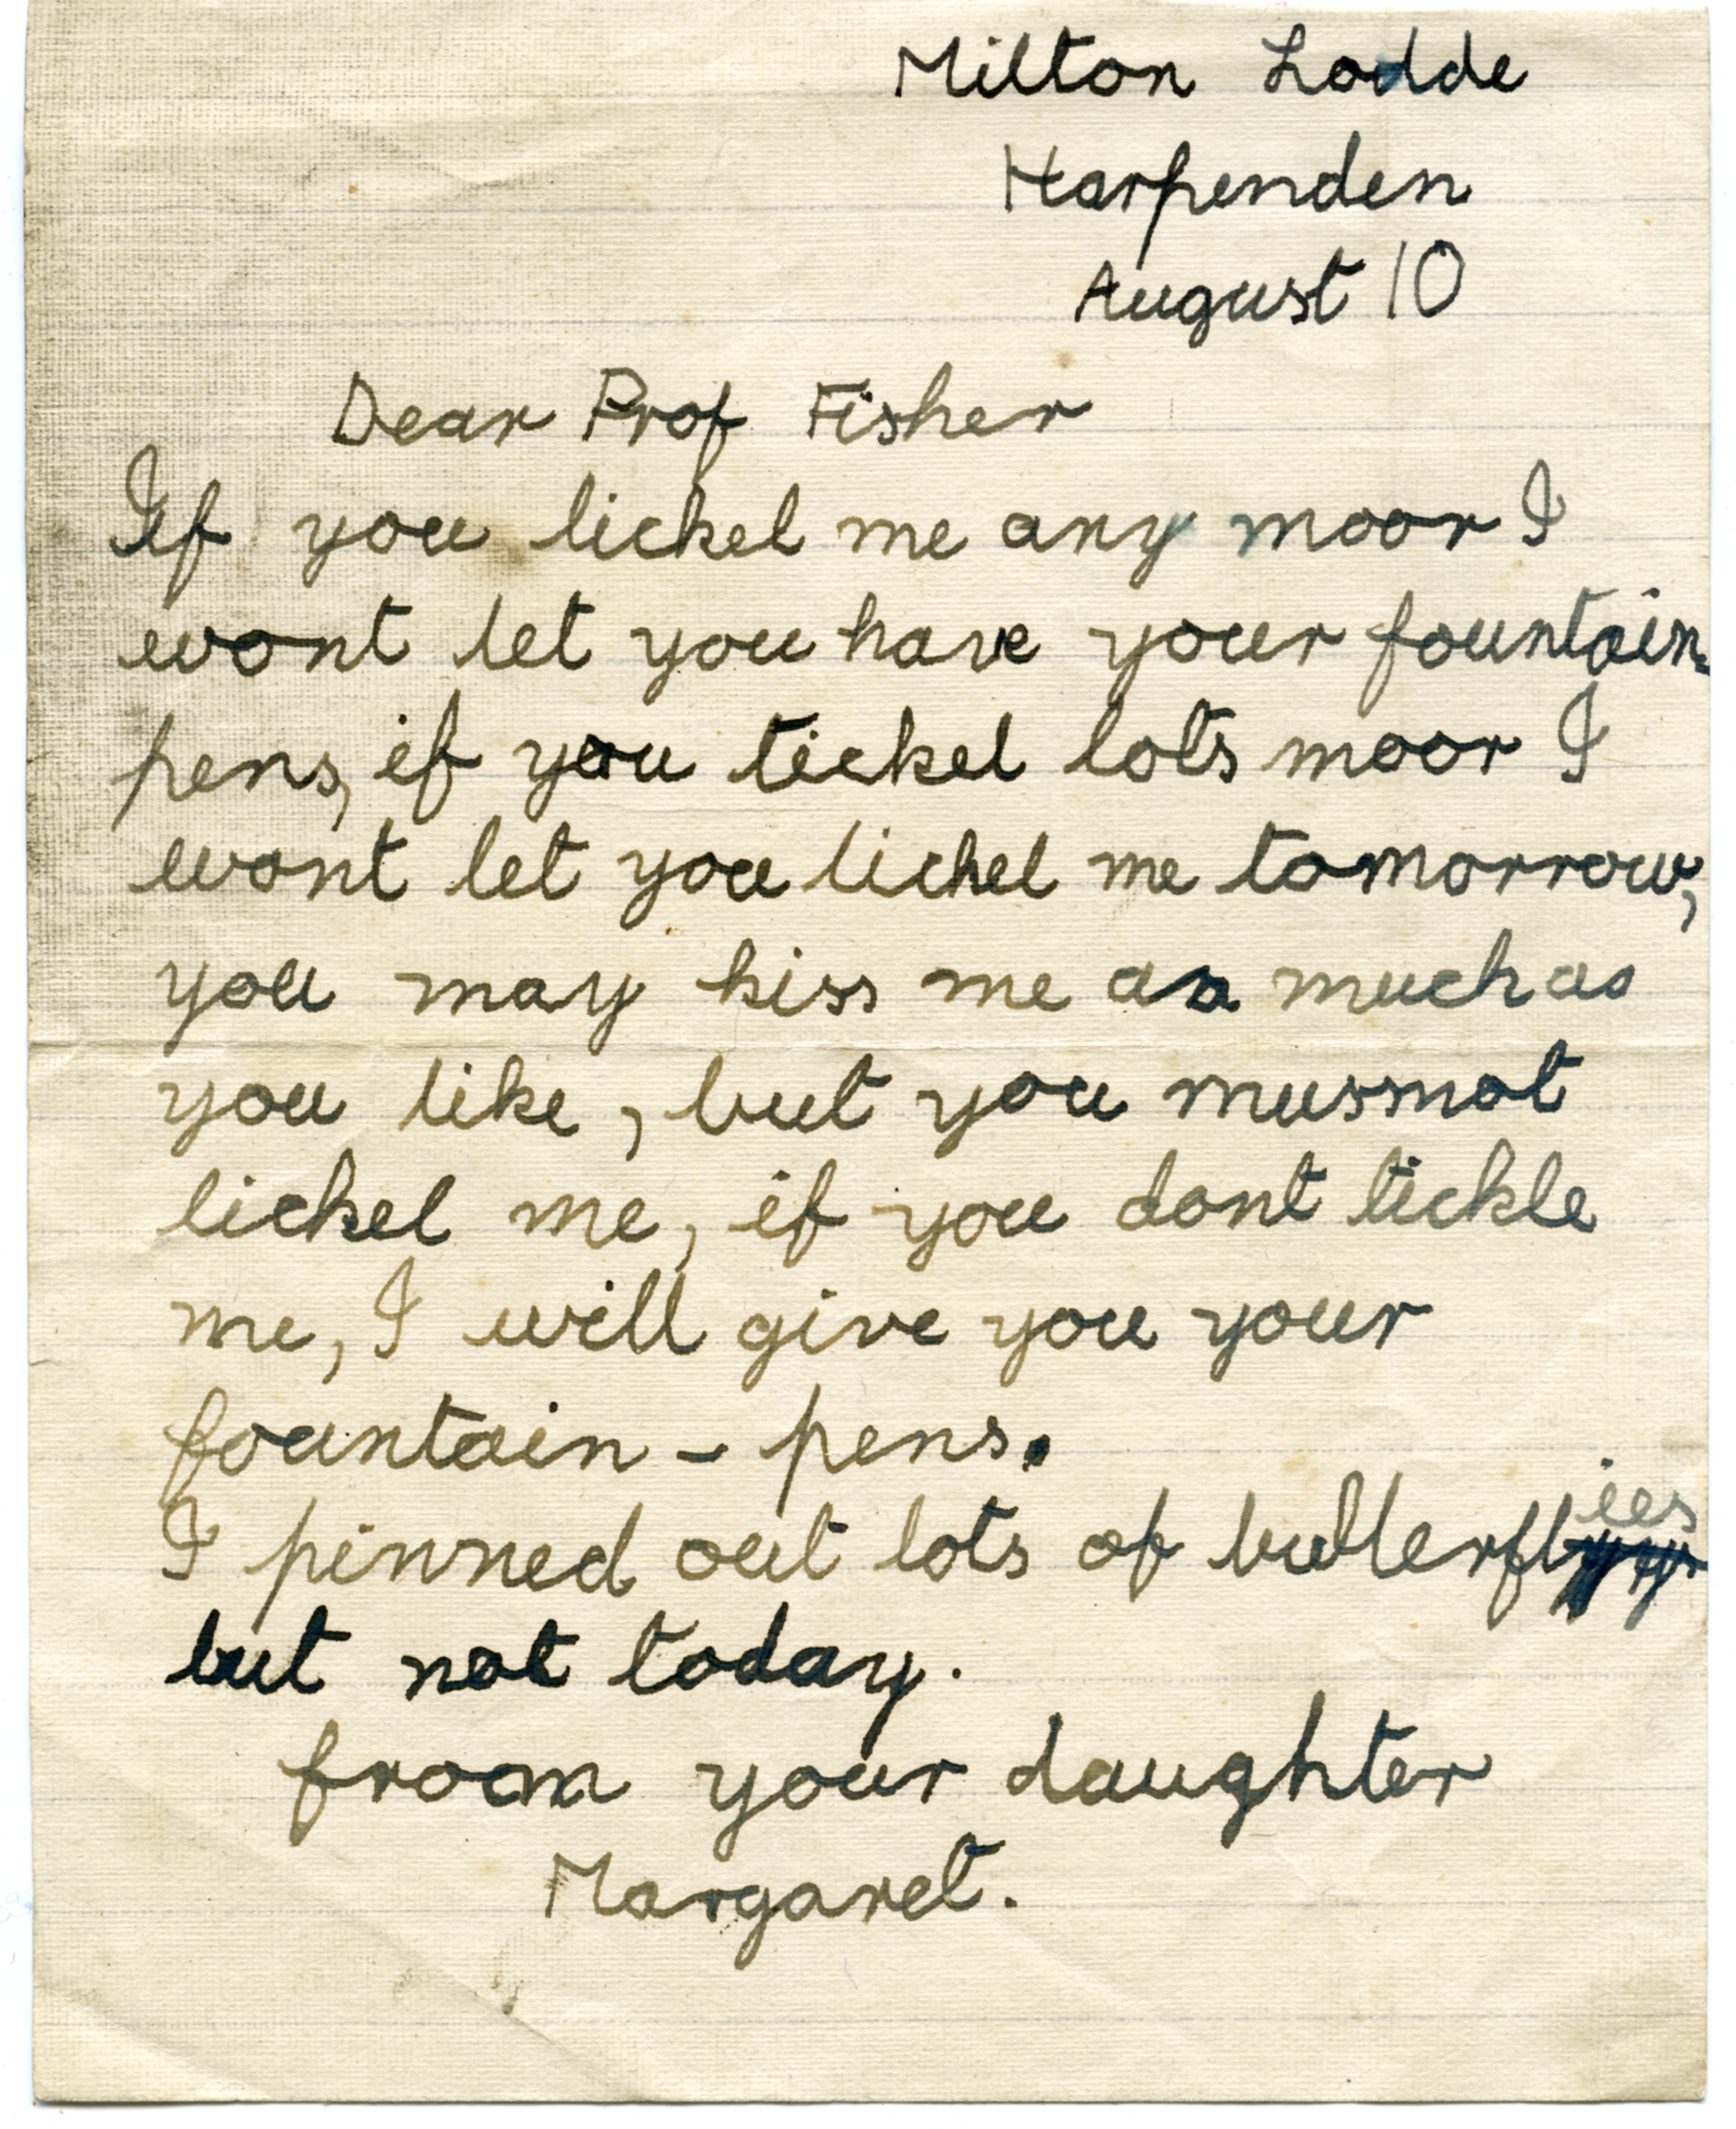 Milton Lodde
Harpenden
August 10
Dear Prof Fisher
If you tickel me any moor I
wont let you have your fountain-
pens, if you tickel lots moor I
wont let you tickel me tomorrow,
you may kiss me as much as
you like, but you musnot
tickel me, if you dont tickle
me, I will give you your
fountain - pens.
I pinned out lots of butterflies
but not today.
from your daughter
Margaret.